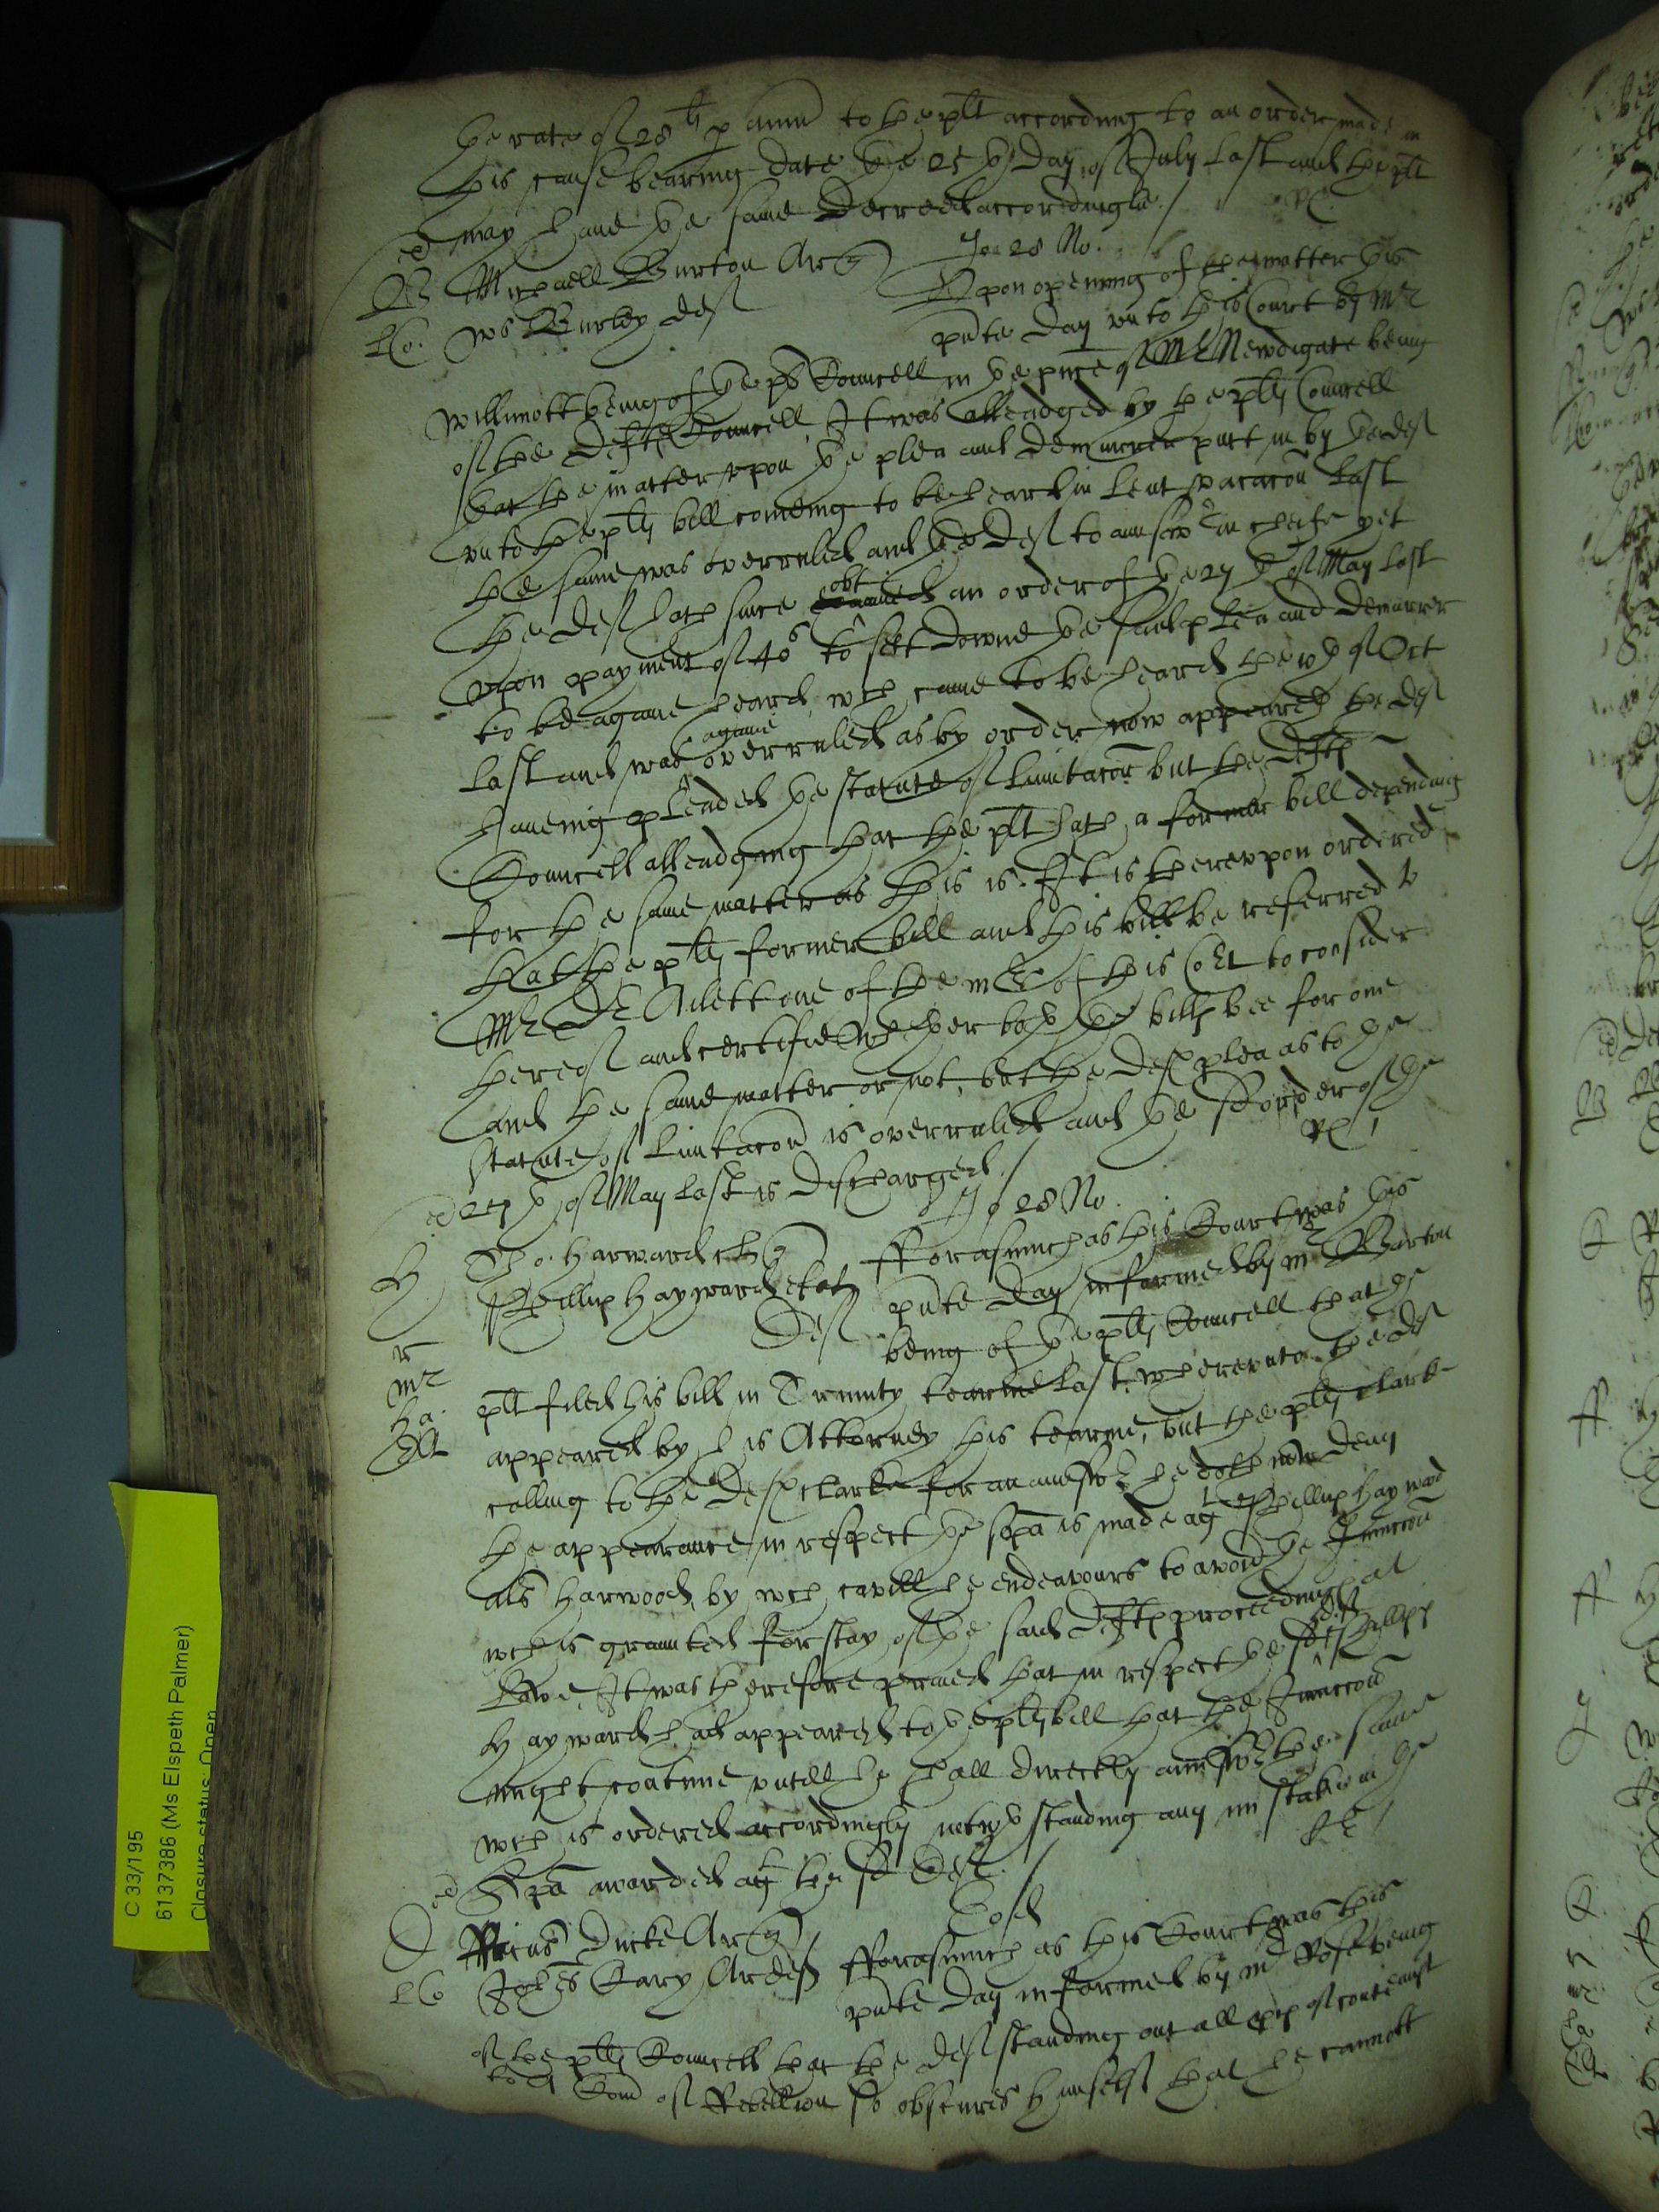 the rate of 28li p ann to the plt according to an order made in
this cause bearing date the 25th day of July last and the plt
may have the same decreed accordingly./
Jo: 28 No.
B Michaell Burton Ar
Upon opening of the matter this
Co: Ws Burley def
pnte day unto this Court by Mr
Willimott being of the pls Councell in the pnce of Mr Newdigate being
of the defts Councell, It was alleadged by the plts Councell
that the matter upon the plea and demurrer putt in by the def
unto the plts bill comeing to be heard in Lent vacacon last
the same was overruled and the def to answr in cheife yet
the def hath since obt an order of the 27th of May last
upon payment of 40s to sett downe the said plea and demurrer
to be againe heard, wch came to be heard the th of Oct
last and was againe overruled as by order now appeareth the def
haueing pleaded the statute of limitacon but the defts
Councell alleadging that the plt hath a former bill depending
for the same matter as this is. It is thereupon ordered
that the plts former bill and this bill be referred to
Mr Dr Ailett one of the mrs of this Cort to consider
thereof and certifie whether both the bills bee for one
and the same matter or not, but the defs plea as to the
statute of limitacon is overruled and the sd order of the
27th of May last is discharged./
Jo 28 No.
H Tho: Harward
fforasmuch as this Court was this
Phillip Hayward et at def
pnte day informed by mr Barton
being of the plts Councell that the
plt filed his bill in Trinity tearme last, whereunto the def
appeared by his Attorney this tearme, but the plts clarke
calling to the defs clarke for an answr he doth now deny
the appearance in respect the spa is made agt Phillip Hayward
als Harwood, by wch cavill he endeavours to avoid the Iniuccon
wch is graunted for stay of the said defts proceedings at
Lawe, It was therefore praied that in respect the sd deft Phillip
Hayward had appeared to the plts bill that the Iniuccon
might continue untill he shall directly answr the same
wch is ordered accordingly notwthstanding any mistake in the
Spa awarded agt the sd deft./
Eosd
D Ricus Ducke Ar
fforasmuch as this Court was this
Co Johes Cary Ar def
pnte day informed by mr Rose being
of the plts Councell that the def standing out all prs of contempt
to a Com of Rebellion so obscures himselfe that he cannott
C 33/195
61 37386 (Ms Elspeth Palmer)
Closure status: Open